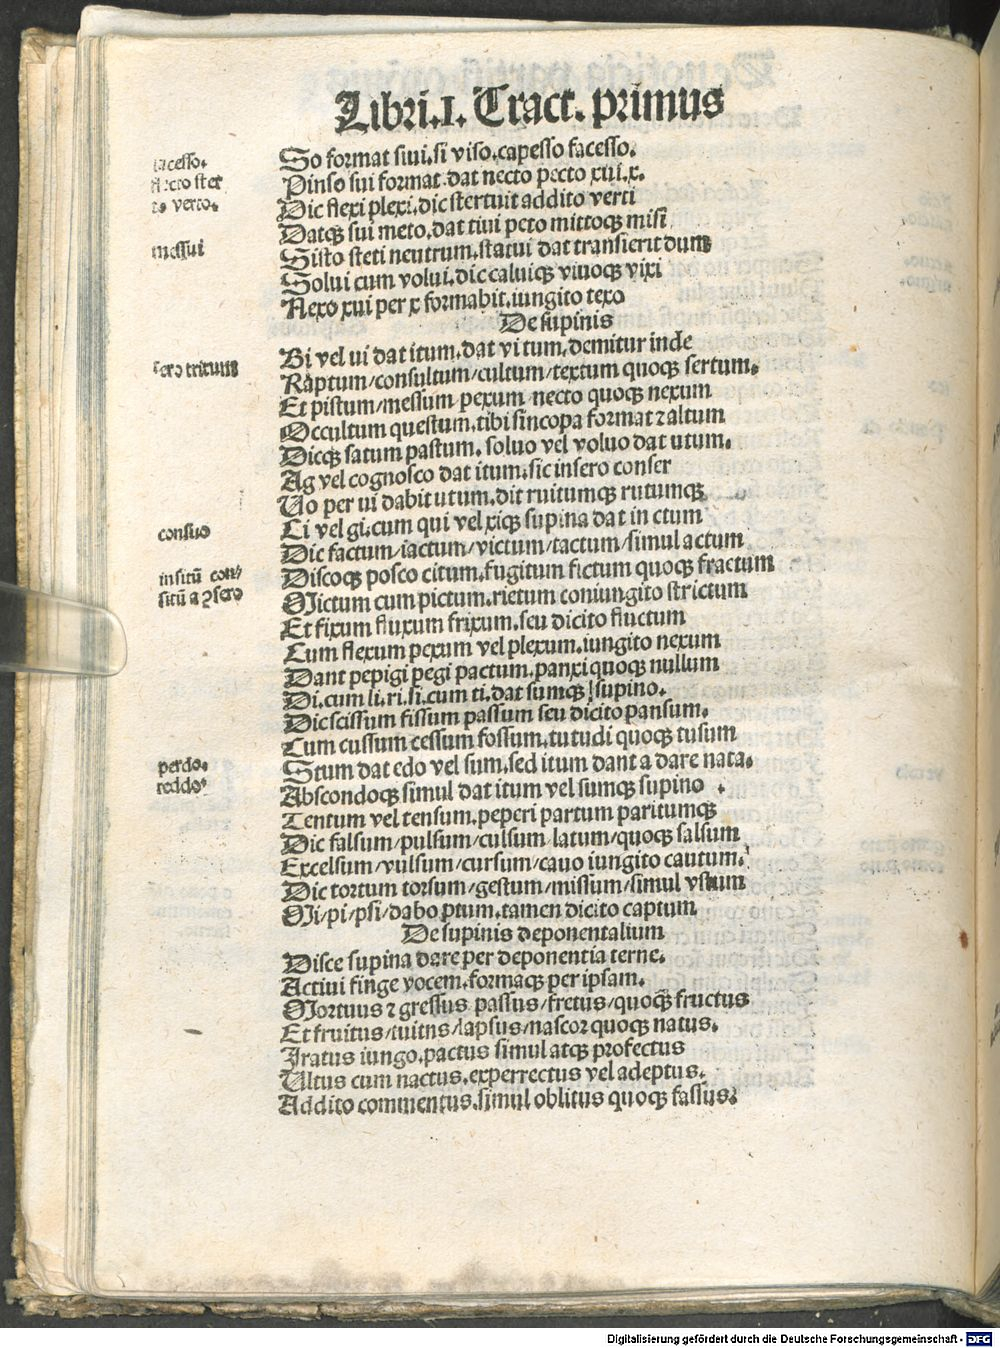 Libri.I. Tract. primus
So format siui.si viso.capesso facesso.
Pinso sui format.dat necto pecto xui.x.
Dic flexi plexi.dic stertuit addito verti
Datqꝫ sui meto.dat tiui peto mittoqꝫ misi
Sisto steti neutrum.statui dat transierit dum
Solui cum volui.dic caluiqꝫ viuoqꝫ vixi
Nexo xui per x formabit.iungito texo
De supinis
Bi vel ui dat itum.dat vi tum.demitur inde
Raptum/consultum/cultum/textum quoqꝫ sertum.
Et pistum/messum pexum necto quoqꝫ nexum
Occultum questum.tibi sincopa format ⁊ altum
Dicqꝫ satum pastum. soluo vel voluo dat utum.
Ag vel cognosco dat itum.sic insero conser
Uo per ui dabit utum.dit ruitumqꝫ rutumqꝫ
Ci vel gi.cum qui vel xiqꝫ supina dat in ctum
Dic factum/iactum/victum/tactum/simul actum
Discoqꝫ posco citum.fugitum fictum quoqꝫ fractum
Mictum cum pictum.rictum coniungito strictum
Et fixum fluxum frixum.seu dicito fluctum
Cum flexum pexum vel plexum.iungito nexum
Dant pepigi pegi pactum.panxi quoqꝫ nullum
Di.cum li.ri.si.cum ti.dat sumqꝫ supino.
Dic scissum fissum passum seu dicito pansum.
Cum cussum cessum fossum.tutudi quoqꝫ tusum
Stum dat edo vel sum.sed itum dant a dare nata.
Abscondoqꝫ simul dat itum vel sumqꝫ supino .
Tentum vel tensum.peperi partum paritumqꝫ
Dic falsum/pulsum/culsum latum/quoqꝫ salsum
Excelsum/vulsum/cursum/cauo iungito cautum.
Dic tortum torsum/gestum/mistum/simul vstum
Mi/pi/psi/dabo ptum.tamen dicito captum
De supinis deponentalium
Disce supina dare per deponentia terne.
Actiui finge vocem.formaqꝫ per ipsam.
Mortuus ⁊ gressus passus/fretus/quoqꝫ fructus
Et fruitus/tuitus/lapsus/nascor quoqꝫ natus.
Iratus iungo.pactus simul atqꝫ profectus
Ultus cum nactus.experrectus vel adeptus.
Addito commentus.simul oblitus quoqꝫ fassus.
facesso.
verto.
messui
sero tritum
consuo
insitū con-
situ a ꝯsero
perdo.
reddo
Digitalisierung gefördert durch die Deutsche Forschungsgemeinschaft - DFG